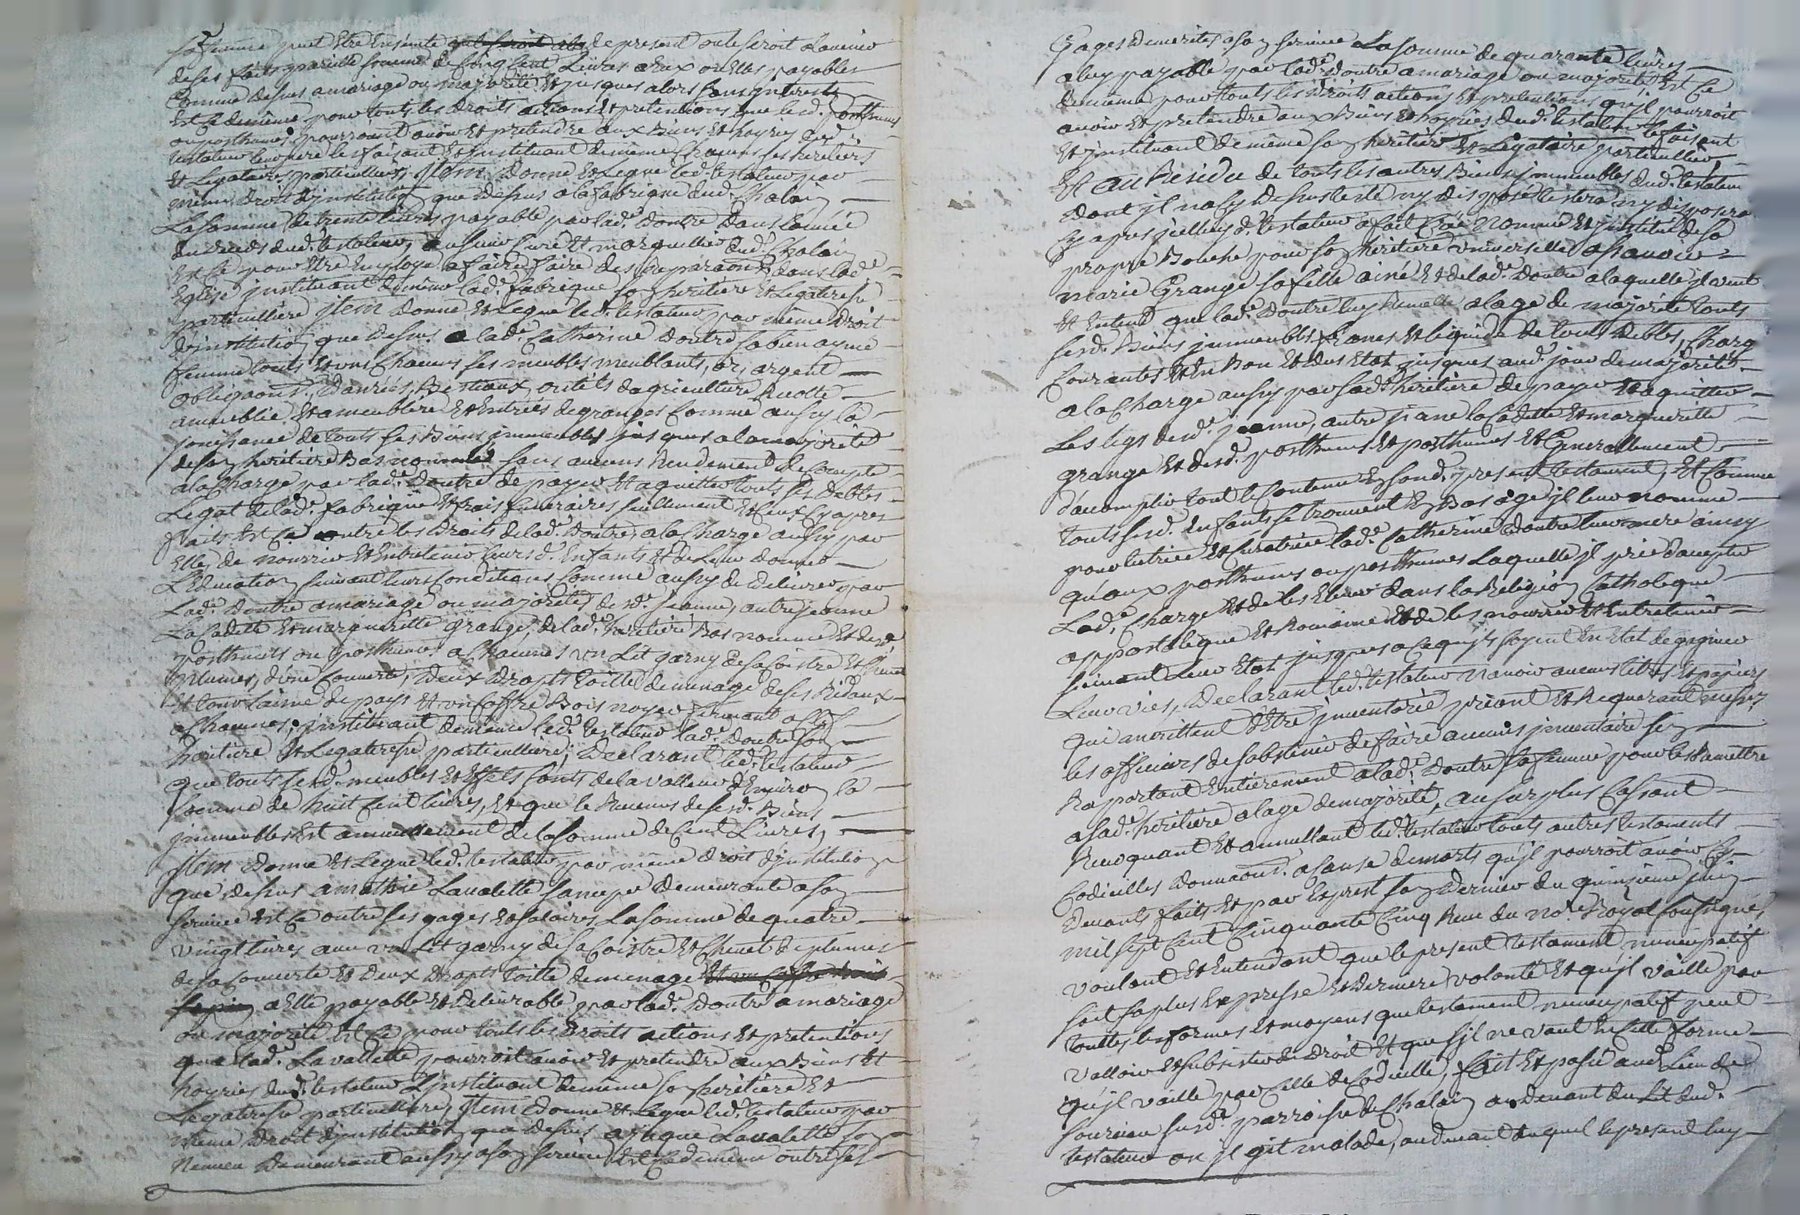 sa femme peut etre Enseinte de present ou le seroit Lavenir
de ses faits pareille somme de Cinq Cent Livres a Eux ou Elles payables
Comme dessus a mariage ou majorité Et jusques alors sans jnterests
Est Ce demême pour touts les droits actions Et pretentions que led. posthume
ou posthumes pourroient avoir Et pretendre aux Biens Et hoyries dud.
testateur leur pere les faisant Et jnstituant demême Chacuns ses heritiers
Et Legataires particulliers, jtem Donne Et Legue led. testateur par
meme droit d'jnstitution que dessus a la fabrique dud. Chalain
La Somme de trente livres payable par lad.e Doutre Dans Lannée
du deces dud. testateur, aux sieur Curé Et marguillier dud. Chalain
Et Ce pour Etre Employé a faire faire des reparaons dans lad.e
Eglise jnstituant de même lad.e fabrique son heritiere Et Legateresse
particulliere jtem donne Et Legue led. testateur par même droit
d'jnstitution que dessus a lad.e Catherine Doutre sa bien aymé
femme touts Et uns Chacuns ses meubles meublants, or, argent
obligaons, Danrées, Bestiaux, outils dagriculture, Recolte
ameublie Et ameublere Et Entrées de granges Comme aussy la
jouissance de touts ses Biens jmmeubles jusques a la majorité
de son heritiere Bas nommée sans aucuns Rendement de Compte
a la Charge par lad.e Doutre de payer Et aquitter touts ses Debtes
Legat de lad.e fabrique Et frais funeraires seullement Et Ceux Cy apres
faits Est Ce outre les droits de lad.e Doutre, a la Charge aussy par
Elle, de nourrir Et Entretenir leursd. Enfants Et de Leur donner
L'Education suivant leurs Conditions Comme aussy de delivrer par
Lad.e Doutre a mariage ou majorité, desd.e jeanne, autre jeanne
La Cadette Et marguerite grange, de lad.e heritiere Bas nommée Et desd.
posthumes ou posthumes a Chacunes un Lit garny de sa Coistre Et Chevet
plumes, d'une Couverte, Deux draps toille demenage de ses Rideaux
Et tour Laine de pays Et un Coffre Bois noyer fermant a Clef
a Chacunes; jnstituant demême led. testateur lad.e Doutre son
heritiere Et Legateresse particulliere; Declarant led. testateur
que touts sesd. meubles Et Effets sont de la valleur d'Environ la
somme de huit Cent livres, Et que le Revenu de sesd. Biens
jmmeubles Est annuellement de la Somme de Cent Livres,
jtem donne Et Legue led. testateur par même droit d'jnstitution
que dessus a mathie Lavalette sa niepce Demeurante a son
service Est Ce outre ses gages Et salaires La Somme de quatre
vingt livres avec un Lit garny de sa Coistre Et Chevet de plumes
de sa Couverte Et deux draps toille demenage Et un Coffre Bois
sapin a Elle payable Et delivrable par lad.e Doutre a mariage
ou majorité Et Ce pour touts les droits actions Et pretentions
que lad.e Lavallette pourroit avoir Et pretendre aux Biens Et
hoyries dud. testateur L'jnstituant demême son heritiere Et
Legateresse particulliere, jtem Donne Et Legue led. testateur par
meme droit d'jnstitution que dessus a Lavalette son
Neveu Demeurant aussy a son service Et Ce demême outre ses
Gages Demerités a son service La Somme de quarante livres
a luy payable par lad.e Doutre a mariage ou majorité Est Ce
demême pour touts les droits actions Et pretentions qu'jl pourroit
avoir Et pretendre aux Biens Et hoyries dud. testateur le faisant
Et jnstituant demême son heritier Et Legataire particullier,
Et au Residu de touts les autres Biens jmmeubles dud. testateur
Dont jl na Cy dessus testé ny disposé testera ny disposera
Cy apres jcelluy d. testateur a fait Créé Nommé Et jnstitué de sa
propre Bouche pour son heritiere universelle asavoir
marie Grange sa fille ainé Et de lad.e Doutre a laquelle jl veut
Et Entend que lad.e Doutre luy Remette a lage de majorité touts
sesd. Biens jmmeubles francs Et liquide de tout Debtes, Charg
Courantes Et En Bon Et dus Etat jusques aud. jour de majorité
a la Charge aussy par sad.e heritiere de payer Et aquitter
Les legs desd.e jeanne, autre jeane la Cadette Et marguerite
grange Et desd. posthumes Et posthumes Et Generallement
d'acomplir tout le Contenu En son d. present testament, Et Comme
touts sesd. Enfants se trouvent En Bas age jl leur nomme
pour tutrice Et Curatrice lad.e Catherine Doutre leur mere ainsy
qu'aux posthumes ou posthumes Laquelle jl prie d'accepter
Lad.e Charge Et de les Elever dans la Religion Catholique
appostolique Et Romaine Et de les nourrir Et Entretenir
suivant leur Etat jusques a Ce qu'jls soyent En Etat de gagner
Leur vies, Declarant led. testateur n'avoir aucuns titres Et papiers
qui merittent d'Etre jnventorié priant Et Requerant messrs
les officiers de sabstenir de faire aucuns jnventaire sen
Raportant Entierement a lad.e Doutre sa femme pour les Remettre
a sad.e heritiere a lage de majorité, au surplus Cassant
Revoquant Et annullant led. testateur touts autres testaments
Codicilles Donnaons a Cause de morts qu'jl pourroit avoir Cy
Devants faits Et par Exprest son Dernier du quinzieme juin
mil sept Cent Cinquante Cinq Reçu du no.re Royal soussigné,
voulant Et Entendant que le present testament nuncupatif
soit sa plus Expresse Et Derniere volonté Et qu'jl vaille par
touttes les formes Et moyens que testament nuncupatif peut
valloir Et subsister de droit Et que s'jl ne vaut de Cette forme
qu'jl vaille par Celle de Codicille, fait Et passé aud. Lieu de
susd.e parroisse de Chalain au devant du Lit dud.
testateur ou jl git malade, au devant duquel le present luy